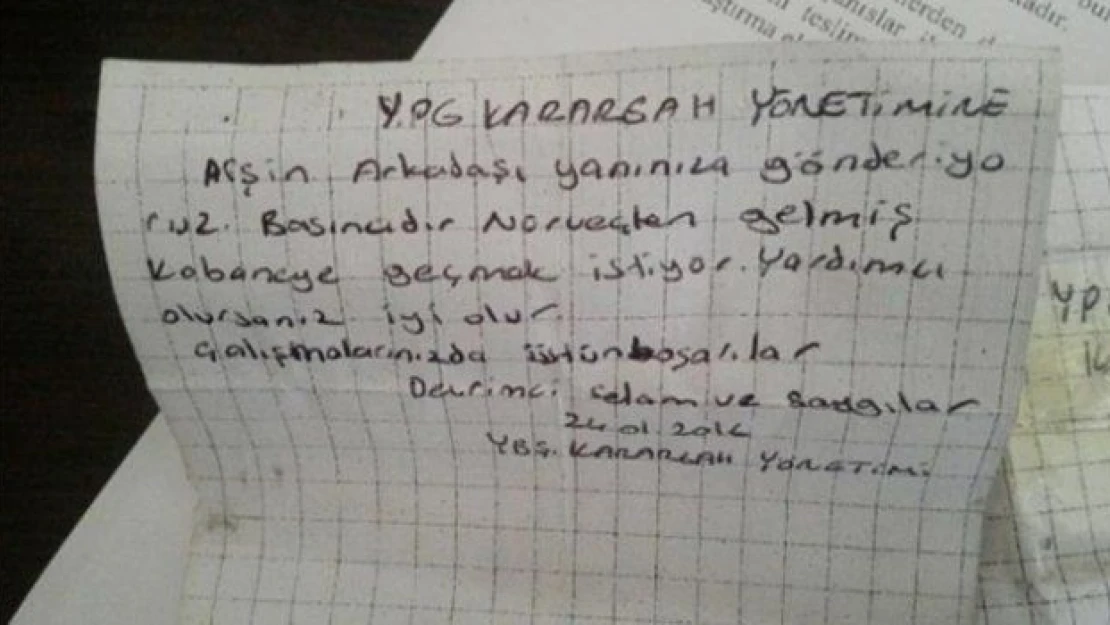 Y.PG KARARGAH YÖNETİMİNE
Afşin Arkadaşı yanınıza gönderiyo
ruz. Basıncıdır Norveçten gelmiş
Kobaneye geçmek istiyor. Yardımcı
olursanız iyi olur
Çalışmalarınızda üstün başarılar
Devrimci selam ve saygılar
24 01 2016
YBŞ. KARARGAH YÖNETİMİ
erden
kadır.
nışlar
teslim
ştırma
YP